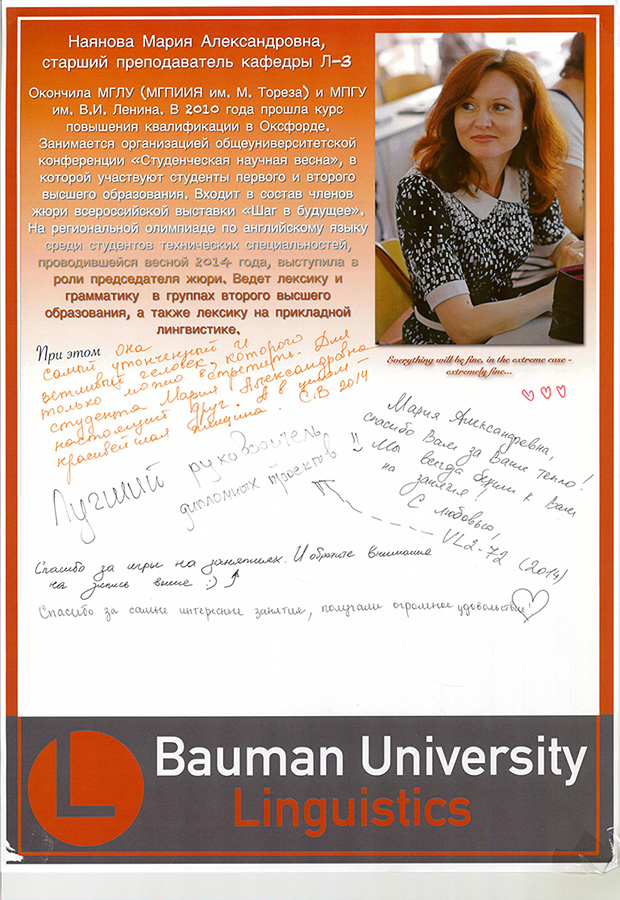 Наянова Мария Александровна,
старший преподаватель кафедры Л-3
Окончила МГЛУ (МГПИИЯ им. М. Тореза) и МПГУ
им. В.И. Ленина. В 2010 года прошла курс
повышения квалификации в Оксфорде.
Занимается организацией общеуниверситетской
конференции «Студенческая научная весна», в
которой участвуют студенты первого и второго
высшего образования. Входит в состав членов
жюри всероссийской выставки «Шаг в будущее».
На региональной олимпиаде по английскому языку
среди студентов технических специальностей,
проводившейся весной 2014 года, выступила в
роли председателя жюри. Ведет лексику и
грамматику в группах второго высшего
образования, а также лексику на прикладной
лингвистике.
Everything will be fine, in the extreme case -
extremely fine...
При этом она
самый утонченный и
ветливый человек, которого
только можно встретить. Для
студента Мария Александровна
настоящий друг. А в целом –
красивейшая женщина. С.В 2014
Мария Александровна,
спасибо Вам за Ваше тепло!
Мы всегда бежим к Вам
на занятия!
С любовью!
VL2-72 (2014)
Лучший руководитель
дипломных проектов !!
Спасибо за игры на занятиях. И обратите внимание
на запись выше :)
Спасибо за самые интересные занятия, получали огромное удовольствие!
L
Bauman University
Linguistics